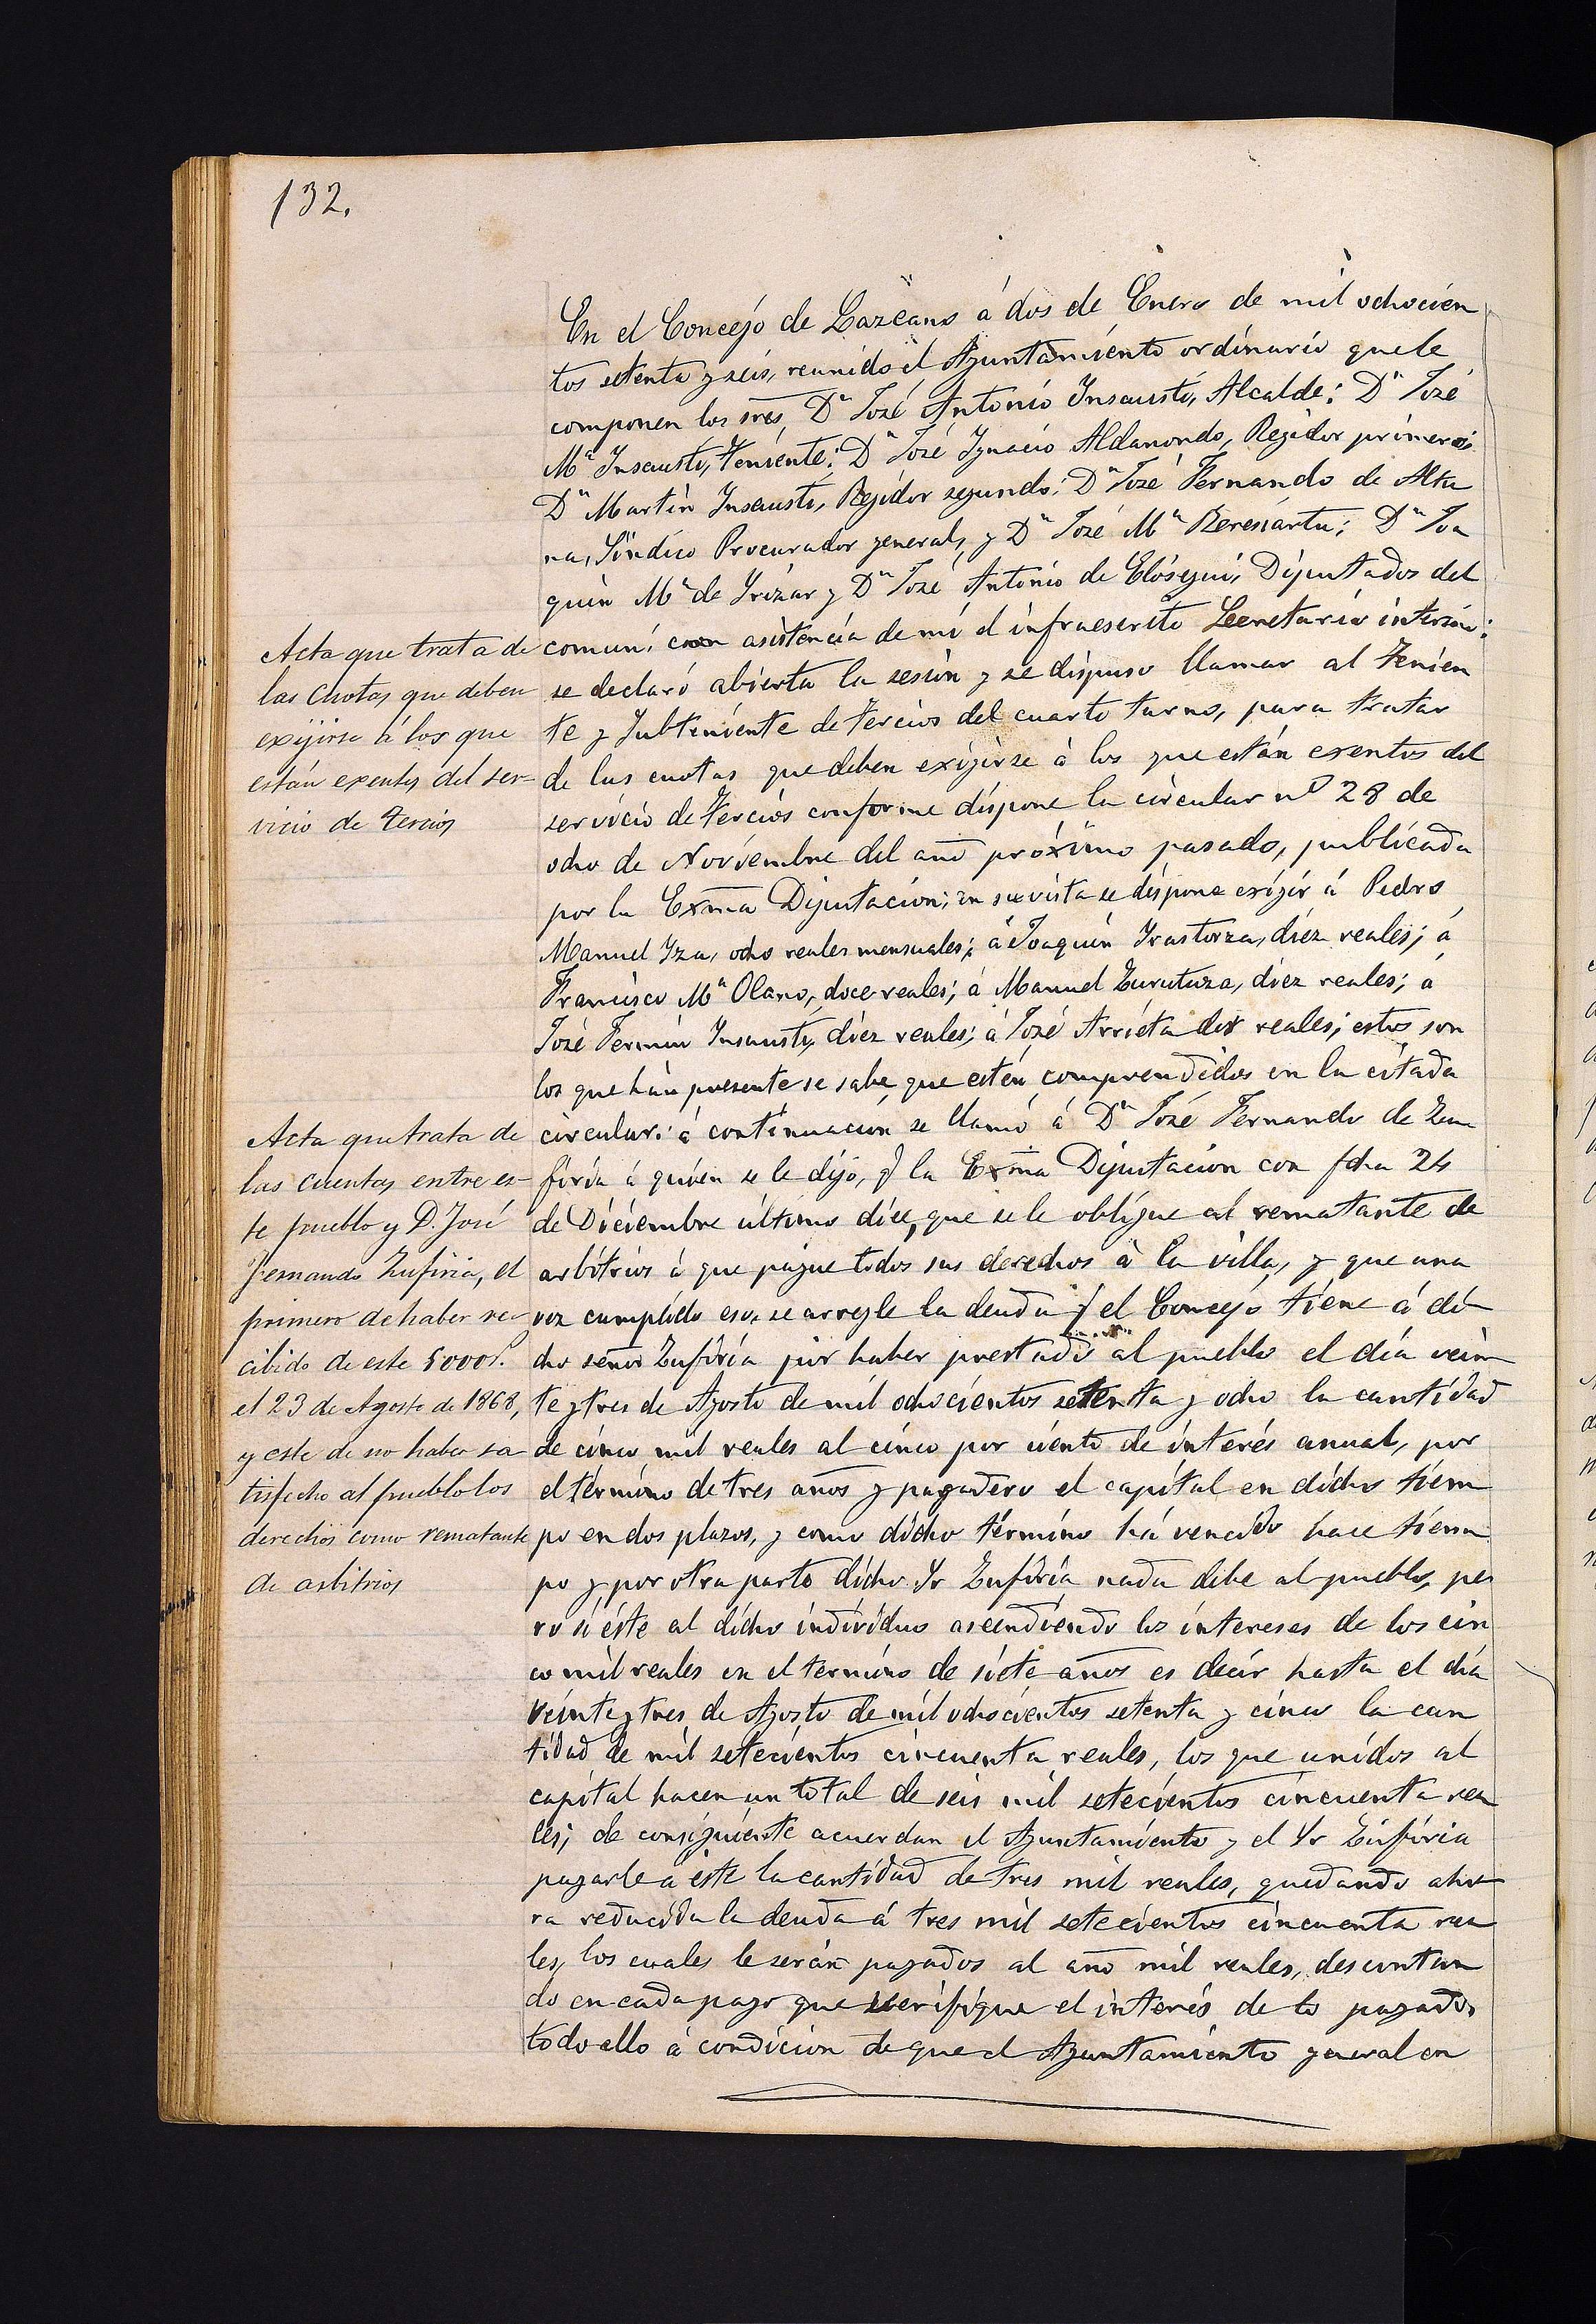 132.
En el Concejo de Lazcano á dos de Enero de mil ochocien
tos setenta y seis, reunido el Ayuntamiento ordinario que le
componen los sres, Dn José Antonio Insausti, Alcalde: Dn José
Ma Insausti, Teniente: Dn José Ignacio Aldanondo, Regidor primero:
Dn Martin Insausti, Regidor segundo: Dn José Fernando de Altu
na, Síndico Procurador general, y Dn José Ma Bereciartu; Dn Joa
quin Ma de Yrizar y Dn José Antonio de Elósegui, Diputados del
comun: con asistencia de mi el infraescrito Secretario interino:
se declaró abierta la sesion y se dispuso llamar al Tenien
te y Subteniente de Tercios del cuarto turno, para tratar
de las cuotas que deben exigirse á los que están exentos del
servicio de Tercios conforme dispone la circular no 28 de
ocho de Noviembre del año próximo pasado, publicada
por la Exma Diputacion; en su vista se dispone exigir á Pedro
Manuel Yza, ocho reales mensuales; á Joaquin Yrastorza, diez reales; á
Francisco Ma Olano, doce reales; á Manuel Zurutuza, diez reales; á
José Fermin Insausti, diez reales; á José Arrieta dos reales; estos son
los que hàn presente se sabe, que estén comprendidos en la citada
circular: á continuacion se llamó á Dn José Fernando de Zu
firia á quien se le dijo, q la Exma Diputacion con fcha 24
de Diciembre último dice, que se le obligue al rematante de
arbitrios á que pague todos sus derechos á la villa, y que una
vez cumplido eso, se arregle la deuda q el Concejo tiene á di
cho señor Zufiria por haber prestado al pueblo el día vein
te y tres de Agosto de mil ochocientos setenta y ocho la cantidad
de cinco mil reales al cinco por ciento de interés anual, por
el término de tres años y pagadero el capital en dicho tiem
po en dos plazos, y como dicho término há vencido hace tiem
po y por otra parte dicho Sr Zufiria nada debe al pueblo, pe
ro si éste al dicho individuo ascendiendo los intereses de los cin
co mil reales en el termino de siete años es decir hasta el dia
veinte y tres de Agosto de mil ochocientos setenta y cinco la can
tidad de mil setecientos cincuenta reales, los que unidos al
capital hacen un total de seis mil setecientos cincuenta rea
les; de consiguiente acuerdan el Ayuntamiento y el Sr Zufiria
pagarle á éste la cantidad de tres mil reales, quedando aho
ra reducida la deuda á tres mil setecientos cincuenta rea
les, los cuales le serán pagados al año mil reales, descontan
do en cada pago que verifique el interés de lo pagado,
todo ello á condicion de que el Ayuntamiento general en
Acta que trata de
las cuotas que deben
exijirse á los que
están exentos del ser-
vicio de Tercios
Acta que trata de
las cuentas entre es-
te pueblo y D. José
Fernando Zufiria, el
primero de haber re-
cibido de este 5000 r.
el 23 de Agosto de 1868,
y este de no haber sa-
tisfecho al pueblo los
derechos como rematante
de arbitrios